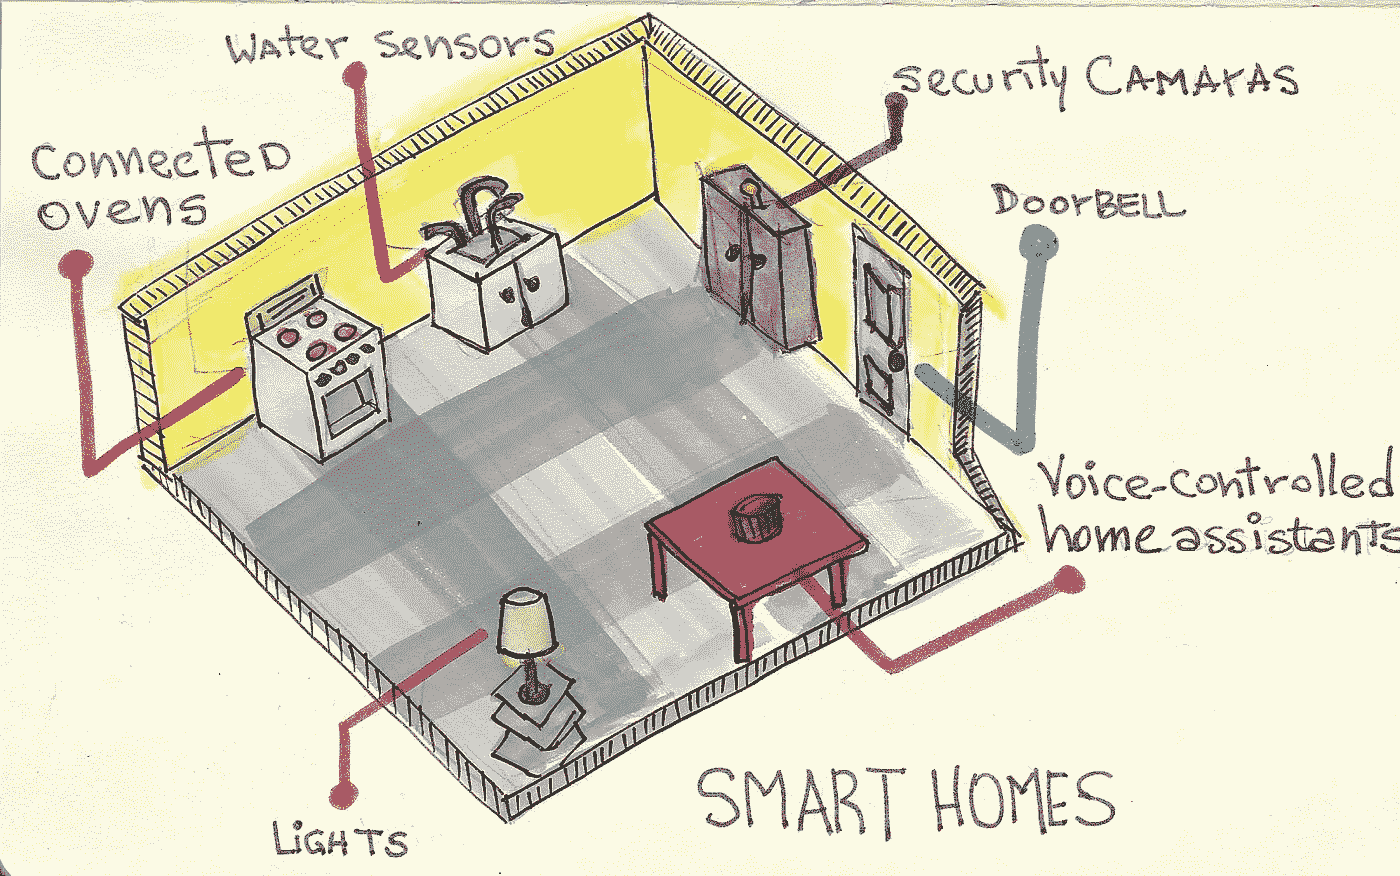 Water sensors
security CAMARAS
Connected
ovens
DoorBELL
Voice-controlled
home assistants
LiGHTS
SMART HOMES